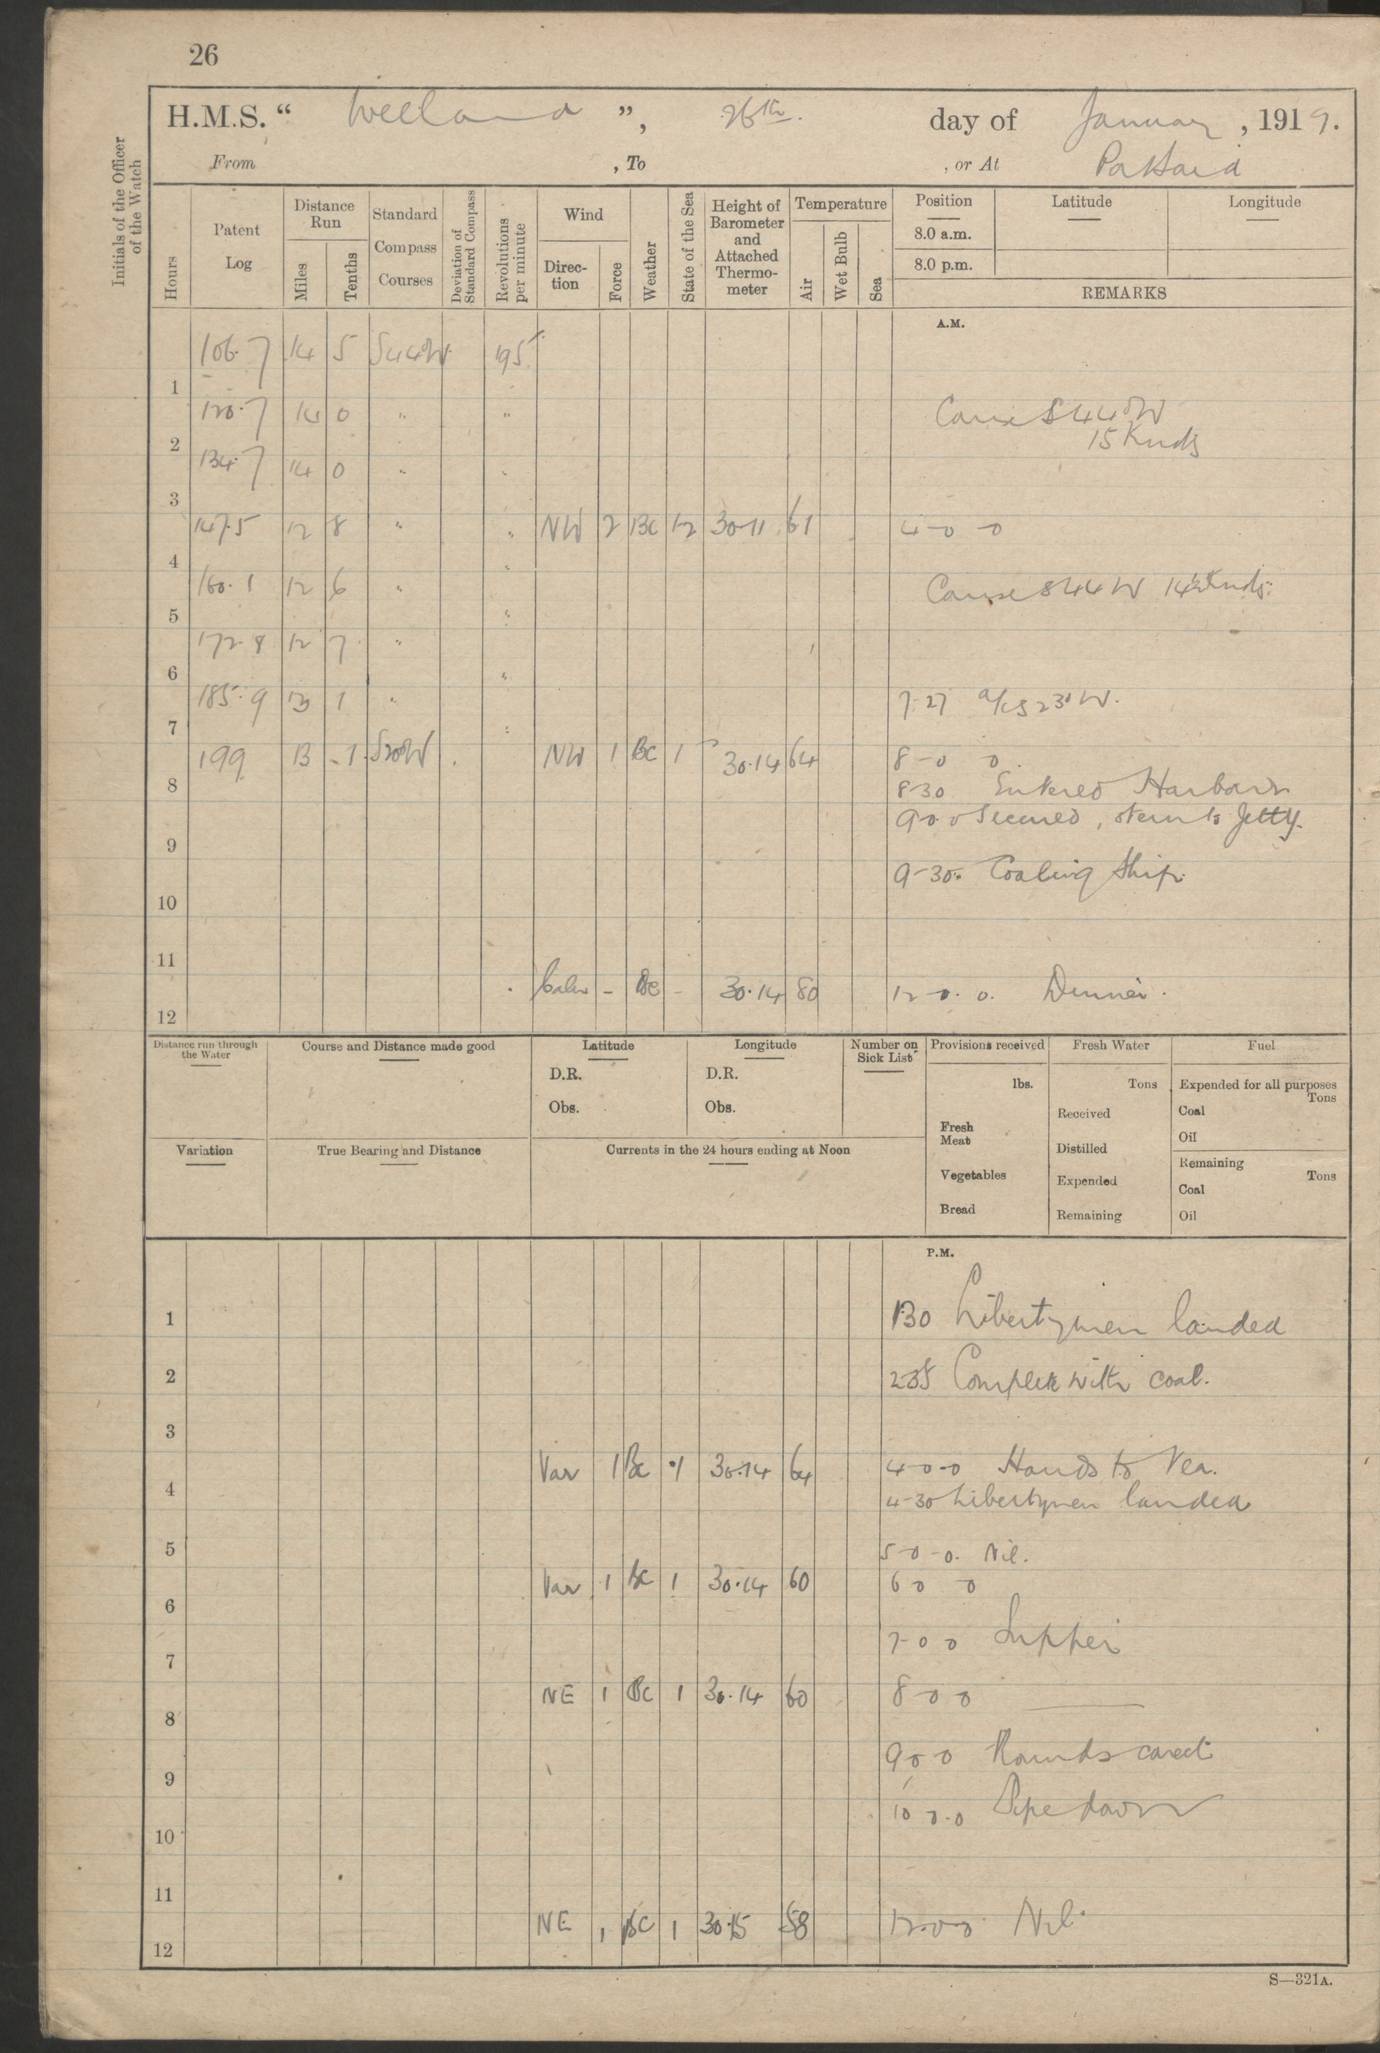 26
H.M.S. “ Welland ”, 26th. day of January, 1919.
From , To , or At Portsaid
Initials of the Officer of the Watch
Hours
Patent Log
Distance Run
Miles
Tenths
Standard Compass Courses
Deviation of Standard Compass
Revolutions per minute
Wind
Direction
Force
Weather
State of the Sea
Height of Barometer and Attached Thermometer
Temperature
Air
Wet Bulb
Sea
Position
8.0 a.m.
8.0 p.m.
Latitude
Longitude
REMARKS
A.M.
1 106.7 14 5 S44W 195
2 120.7 14 0 " " Course S44W
15 Knots
3 134.7 14 0 " "
4 147.5 12 8 " " NW 2 BC 12 30.11 61 4-0 0
5 160.1 12 6 " " Course S44W 14½ Knots.
6 172.8 12 7 " "
7 185.9 13 1 " " 7.27 a/c S23W.
8 199 13 .1 S20W " NW 1 BC 1 30.14 64 8-0 0.
8-30 Entered Harbour
9 9-0 0 Secured, stern to Jetty.
10 9-30. Coaling Ship.
11
12 Calm - BC - 30.14 80 12 0. 0. Dinner.
Distance run through the Water
Course and Distance made good
Latitude
D.R.
Obs.
Longitude
D.R.
Obs.
Number on Sick List
Provisions received
lbs.
Fresh Meat
Vegetables
Bread
Fresh Water
Tons
Received
Distilled
Expended
Remaining
Fuel
Expended for all purposes
Tons
Coal
Oil
Remaining
Tons
Coal
Oil
Variation
True Bearing and Distance
Currents in the 24 hours ending at Noon
P.M.
1 130 Libertymen landed
2 235 Complete with coal.
3
4 Var 1 BC 1 30.14 64 4-0-0 Hands to Tea.
4-30 Libertymen landed
5 5-0-0. Nil.
6 Var 1 BC 1 30.14 60 6 0 0
7 7-0 0 Supper
8 NE 1 BC 1 30.14 60 8-0 0
9 9 0 0 Rounds correct
10 10 0.0 Pipe down
11
12 NE 1 BC 1 30.15 58 12.0 0 Nil.
S—321A.